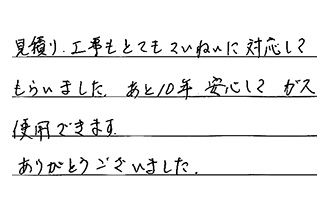 見積り.工事もとてもていねいに対応して
もらいました. あと10年 安心して ガス
使用できます.
ありがとうございました.